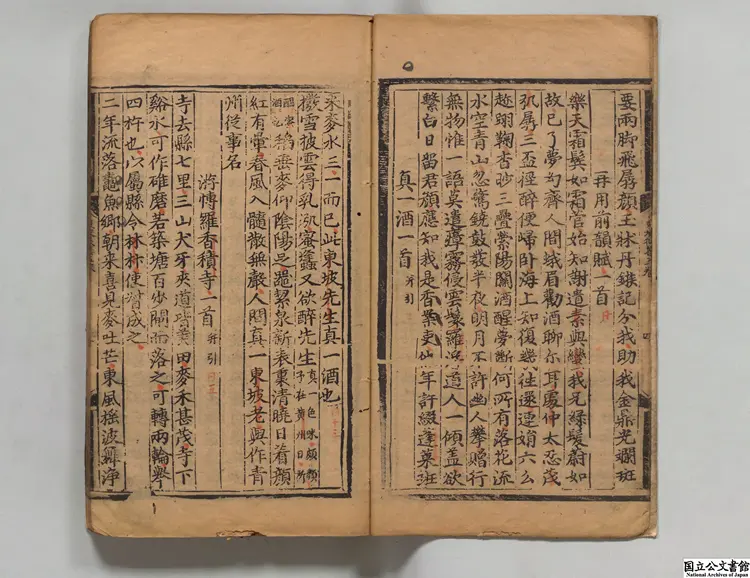 要兩脚飛孱顏玉牀丹鏃記分我助我金鼎光斕斑
再用前韻賦一首
樂天霜鬢如霜菅始知謝遣素與蠻我兄綠髮蔚如
故已了夢幻齊人間蛾眉勸酒聊尔耳處仲太忍茂
弘孱三盃徑醉便歸卧海上知復幾往還連娟六幺
趁蹋鞠杳眇三疊縈陽關酒醒夢斷何所有落花流
水空青山忽驚鐃鼓發半夜明月不許幽人攀贈行
無物惟一語莫遣瘴霧侵雲鬟羅浮道人一傾盖欲
繫白日留君顏應知我是香案吏他年許綴蓬萊班
真一酒一首 并引
米麥水三一而已此東坡先生真一酒也
撥雪披雲得乳泓蜜蠭又欲醉先生 真一色味頗類予在黃州日所
醖蜜酒也 稻垂麥仰陰陽足器潔泉新表裏清曉日着顏
紅有暈春風入髓散無聲人間真一東坡老與作青
州從事名
游博羅香積寺一首 并引
寺去縣七里三山犬牙夾道皆美田麥禾甚茂寺下
谿水可作碓磨若築塘百步閘而落之可轉兩輪舉
四杵也以屬縣令林抃使督成之
二年流落魚鄉朝来喜見麥吐芒東風搖波舞淨
国立公文書館
National Archives of Japan